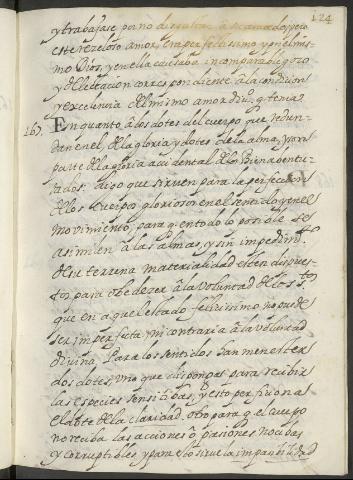 124
y trabajase por no disgustar a su amado; pero
este rezeloso amor, era perfetissimo y en el mis-
mo Dios, y en ella causaba incomparable gozo
y delectacion correspondiente â la condicion
y excelencia del mismo amor diu.º q. tenia
167. En quanto â los dotes del cuerpo que redun-
dan en el, de la gloria y dotes de la alma, y son
parte de la gloria accidental de los Bienauentu-
rados; digo que siruen para la perfeccion
de los cuerpos gloriosos en el sentido, y en el
mouimiento, para q. en todo lo posible se
asimilen â las almas, y sin impedim.to
de su terrena materialidad esten dispues-
tos para obedezer â la voluntad de los S.tos
que en aquel estado felicissimo no puede
ser imperfecta, ni contraria â la voluntad
diuina. Para los sentidos han menester
dos dotes, uno que disponga para recibir
las especies sensibles, y esto perficiona
el dote de la claridad. otro para q. el cuerpo
no reciba las acciones ô pasiones nociuas
y corruptibles, y para esto sirue la impasibilidad